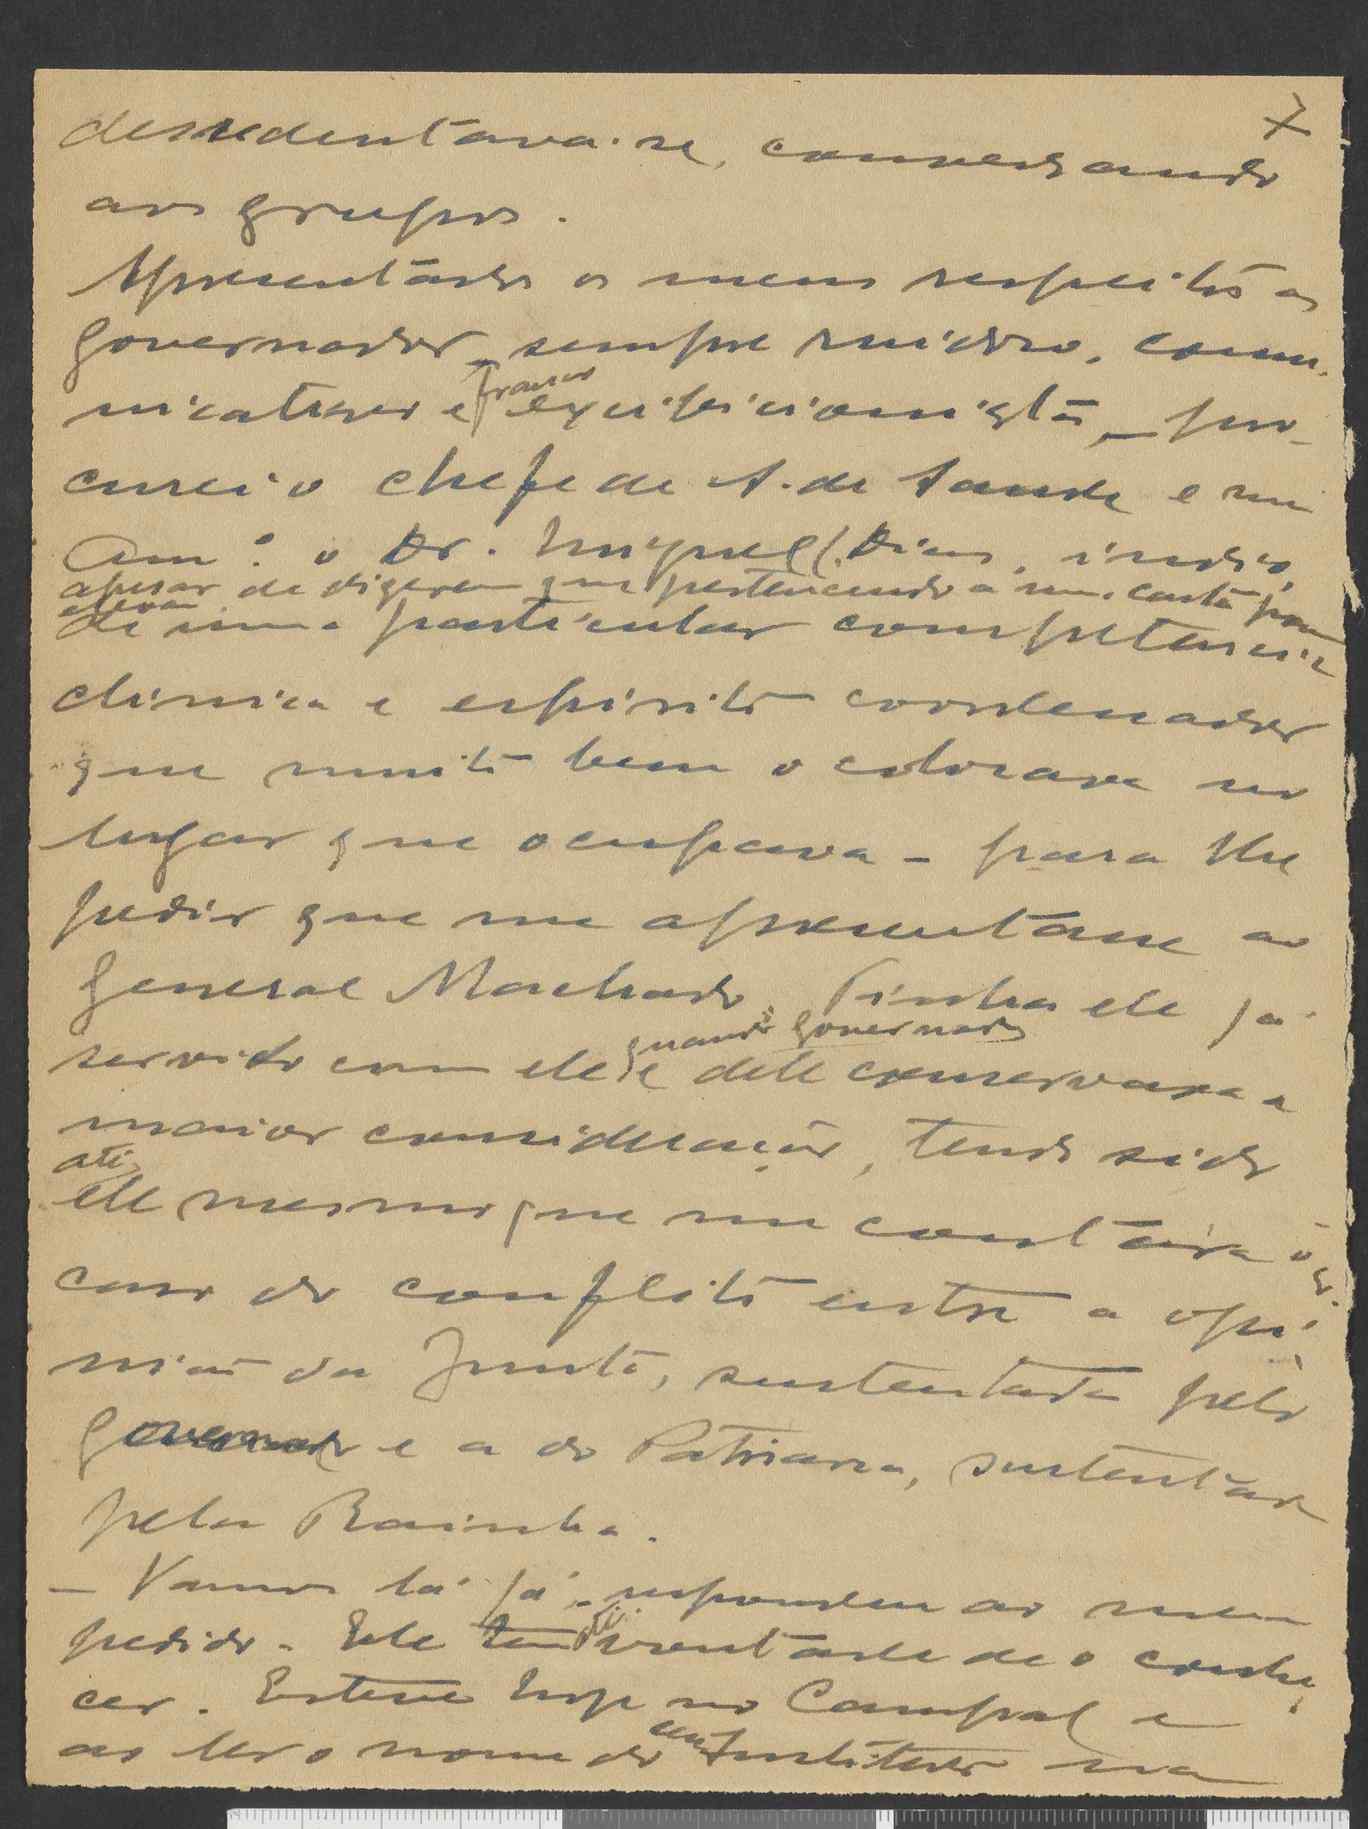 7
dessedentava-se, conversando
aos grupos.
Apresentados os meus respeitos ao
governador – sempre ruidoso, comu-
nicativo e franco exibicionista, – pro-
curei o chefe de S. de Saude e meu
am.º o Dr. Miguel C. Dias, indio,
apesar de dizerem que pertencendo a uma casta
de uma particular competencia
clinica e espirito coordenador
que muito bem o colocava no
lugar que ocupava – para lhe
pedir que me apresentasse ao
General Machado. Tinha ele já
servido com ele quando governador
e dele conservava a
maior consideração, tendo sido
até
ele mesmo que me contára o
caso do conflito entre a opi-
nião da Junta, sustentada pelo
governador e a do Patriarca, sustentada
pela Rainha.
– Vamos lá já, – respondeu ao meu
pedido. – Ele tem até vontade de o conhe-
cer. Esteve hoje no Campal e
ao ler o nome do seu Instituto na